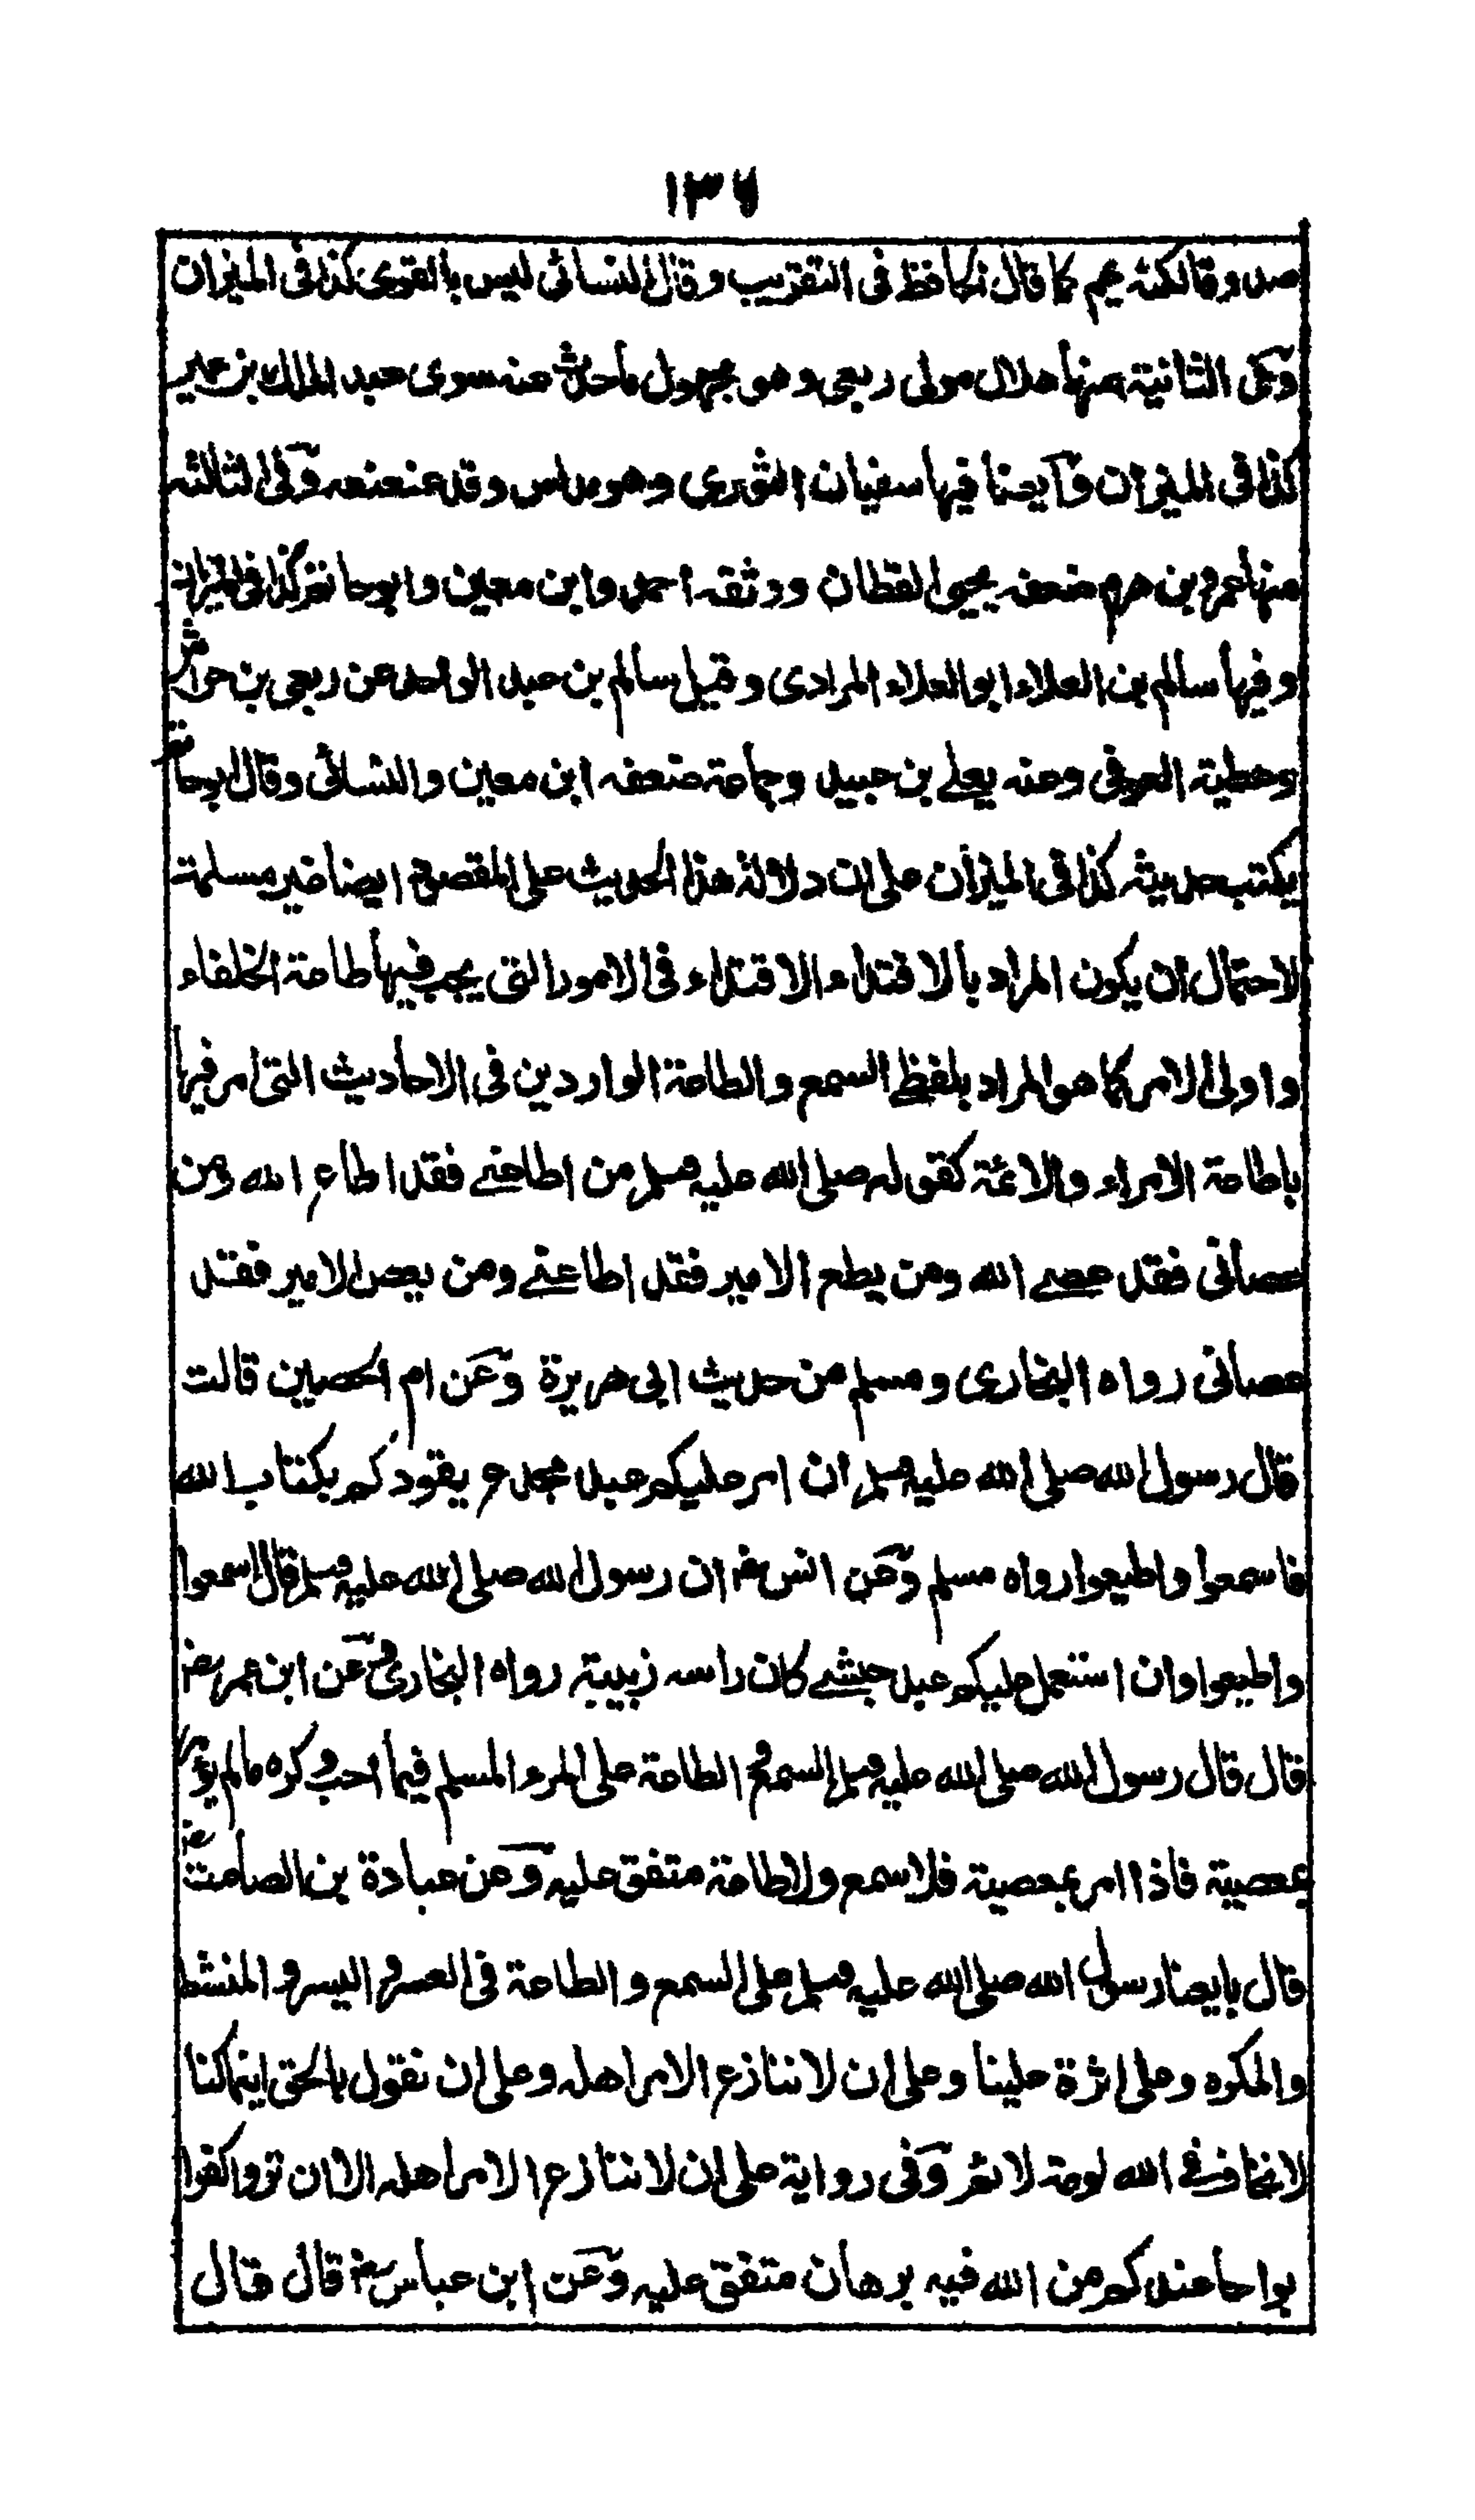 ١٣٦
صدوقا لكنه عمى كما قال الحافظ فى التقريب وقال النسائى ليس بالقوى كذا فى الميزان
وعلى الثانية منها هلال مولى ربعى وهو مجهول ما حدث عنه سوى عبد الملك بن عمير
كذا فى الميزان وايضا فيها سفيان الثورى وهو مدلس وقد عنعنه وفى الثالثة
منها عمرو بن هرم ضعفه يحيى القطان ووثقه احمد وابن معين وابو حاتم كذا فى الميزان
وفيها سالم بن العلاء ابو العلاء المرادى وقيل سالم بن عبد الواحد عن ربعى بن حراش
وعطية العوفى وعنه يعلى بن عبيد وجماعة ضعفه ابن معين والنسائى وقال ابو حاتم
يكتب حديثه كذا فى الميزان على ان دلالة هذا الحديث على المقصود ايضا غير مسلمة
لاحتمال ان يكون المراد بالاقتداء الاقتداء فى الامور التى يجب فيها طاعة الخلفاء
واولى الامر كما هو المراد بلفظ السمع والطاعة الواردين فى الاحاديث التى امر فيها
باطاعة الامراء والائمة كقوله صلى الله عليه وسلم من اطاعنى فقد اطاع الله ومن
عصانى فقد عصى الله ومن يطع الامير فقد اطاعنى ومن يعص الامير فقد
عصانى رواه البخارى ومسلم من حديث ابى هريرة وعن ام الحصين قالت
قال رسول الله صلى الله عليه وسلم ان امر عليكم عبد مجدع يقودكم بكتاب الله
فاسمعوا واطيعوا رواه مسلم وعن انس رض ان رسول الله صلى الله عليه وسلم قال اسمعوا
واطيعوا وان استعمل عليكم عبد حبشى كان راسه زبيبة رواه البخارى وعن ابن عمر رض
قال قال رسول الله صلى الله عليه وسلم السمع والطاعة على المرء المسلم فيما احب وكره ما لم يؤمر
بمعصية فاذا امر بمعصية فلا سمع ولا طاعة متفق عليه وعن عبادة بن الصامت رض
قال بايعنا رسول الله صلى الله عليه وسلم على السمع والطاعة فى العسر واليسر والمنشط
والمكره وعلى اثرة علينا وعلى ان لا ننازع الامر اهله وعلى ان نقول بالحق اينما كنا
لا نخاف فى الله لومة لائم وفى رواية على ان لا ننازع الامر اهله الا ان تروا كفرا
بواحا عندكم من الله فيه برهان متفق عليه وعن ابن عباس رض قال قال